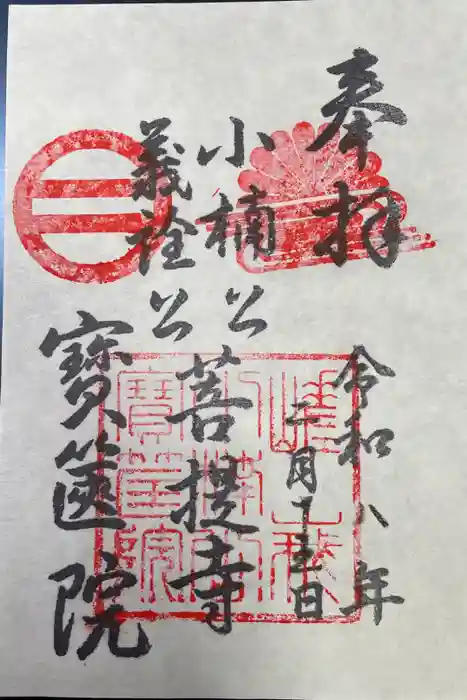 奉拝
令和八年
二月十五日
小楠公
義詮公
菩提寺
寶筐院